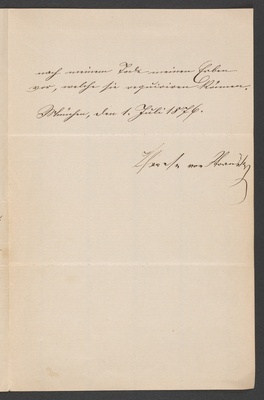 nach meinem Tode meinen Erben
vor, welche sie requiriren können.
München, den 1. Juli 1876.
von